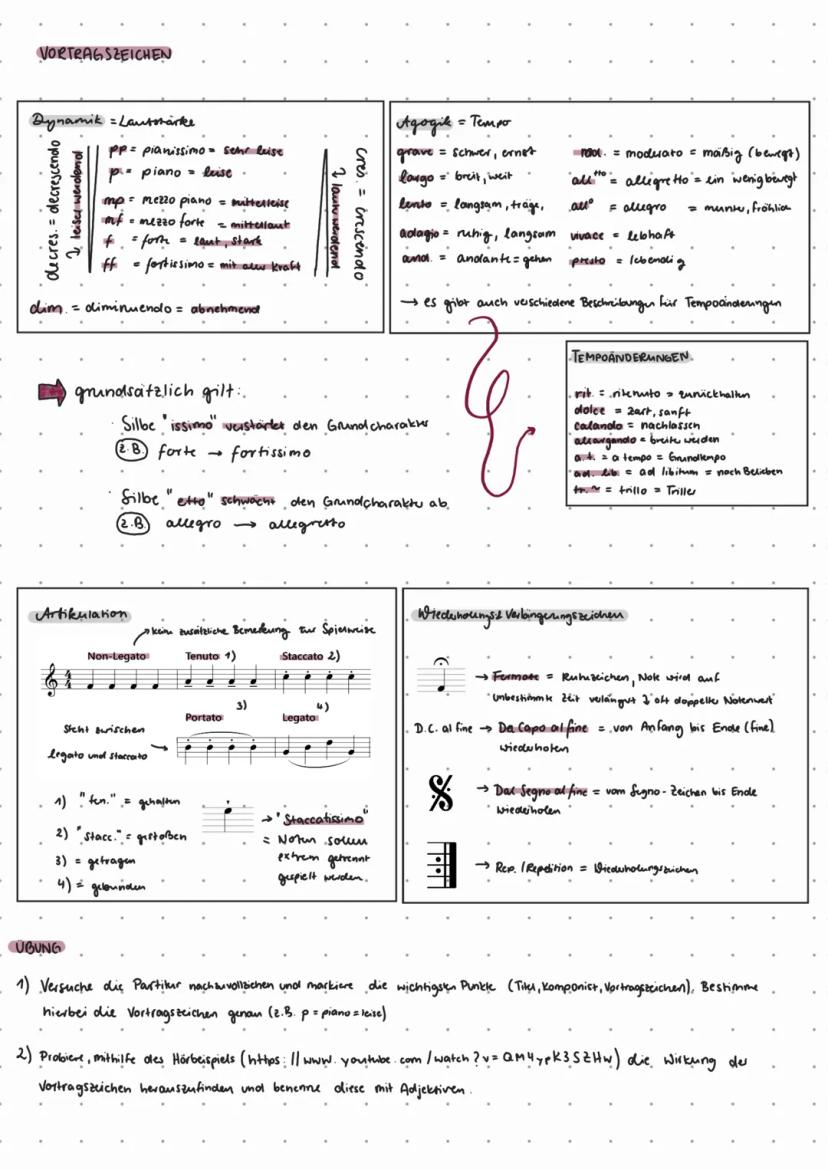 VORTRAGSZEICHEN
Dynamik = Lautstärke
decres. = decrescendo
↳ leiser werdend
pp = pianissimo = sehr leise
p = piano = leise
mp = mezzo piano = mittelleise
mf = mezzo forte = mittellaut
f = forte = laut, stark
ff = fortissimo = mit aller Kraft
cres. = crescendo
↳ lauter werdend
dim. = diminuendo = abnehmend
Agogik = Tempo
grave = schwer, ernst
largo = breit, weit
lento = langsam, träge,
adagio = ruhig, langsam
and. = andante = gehen
mod. = moderato = mäßig (bewegt)
all.tto = allegretto = ein wenig bewegt
all.o = allegro = munter, fröhlich
vivace = lebhaft
presto = lebendig
→ es gibt auch verschiedene Beschreibungen für Tempoänderungen
TEMPOÄNDERUNGEN
rit. = ritenuto = zurückhalten
dolce = zart, sanft
calando = nachlassen
allargando = breiter werden
a.t. = a tempo = Grundtempo
ad. lib. = ad libitum = nach Belieben
tr. ~ = trillo = Triller
grundsätzlich gilt:
· Silbe "issimo" verstärkt den Grundcharakter
z.B. forte → fortissimo
· Silbe "etto" schwächt den Grundcharakter ab
z.B. allegro → allegretto
Artikulation
keine zusätzliche Bemerkung zur Spielweise
Non-Legato Tenuto 1) Staccato 2)
3) 4)
Portato Legato
Steht zwischen
legato und staccato →
1) "ten." = gehalten
2) "stacc." = gestoßen
3) = getragen
4) = gebunden
→ "Staccatissimo"
= Noten sollen
extrem getrennt
gespielt werden.
Wiederholungs & Verlängerungszeichen
→ Fermate = Ruhezeichen, Note wird auf
unbestimmte Zeit verlängert & oft doppelter Notenwert
D.C. al fine → Da Capo al fine = von Anfang bis Ende (fine)
wiederholen
→ Dal Segno al fine = vom Segno-Zeichen bis Ende
wiederholen
→ Rep. / Repetition = Wiederholungszeichen
ÜBUNG
1) Versuche die Partitur nachzuvollziehen und markiere die wichtigsten Punkte (Titel, Komponist, Vortragszeichen). Bestimme
hierbei die Vortragszeichen genau (z.B. p = piano = leise)
2) Probiere, mithilfe des Hörbeispiels (https://www.youtube.com/watch?v=QM4ypK3SZHw) die Wirkung der
Vortragszeichen herauszufinden und benenne diese mit Adjektiven.